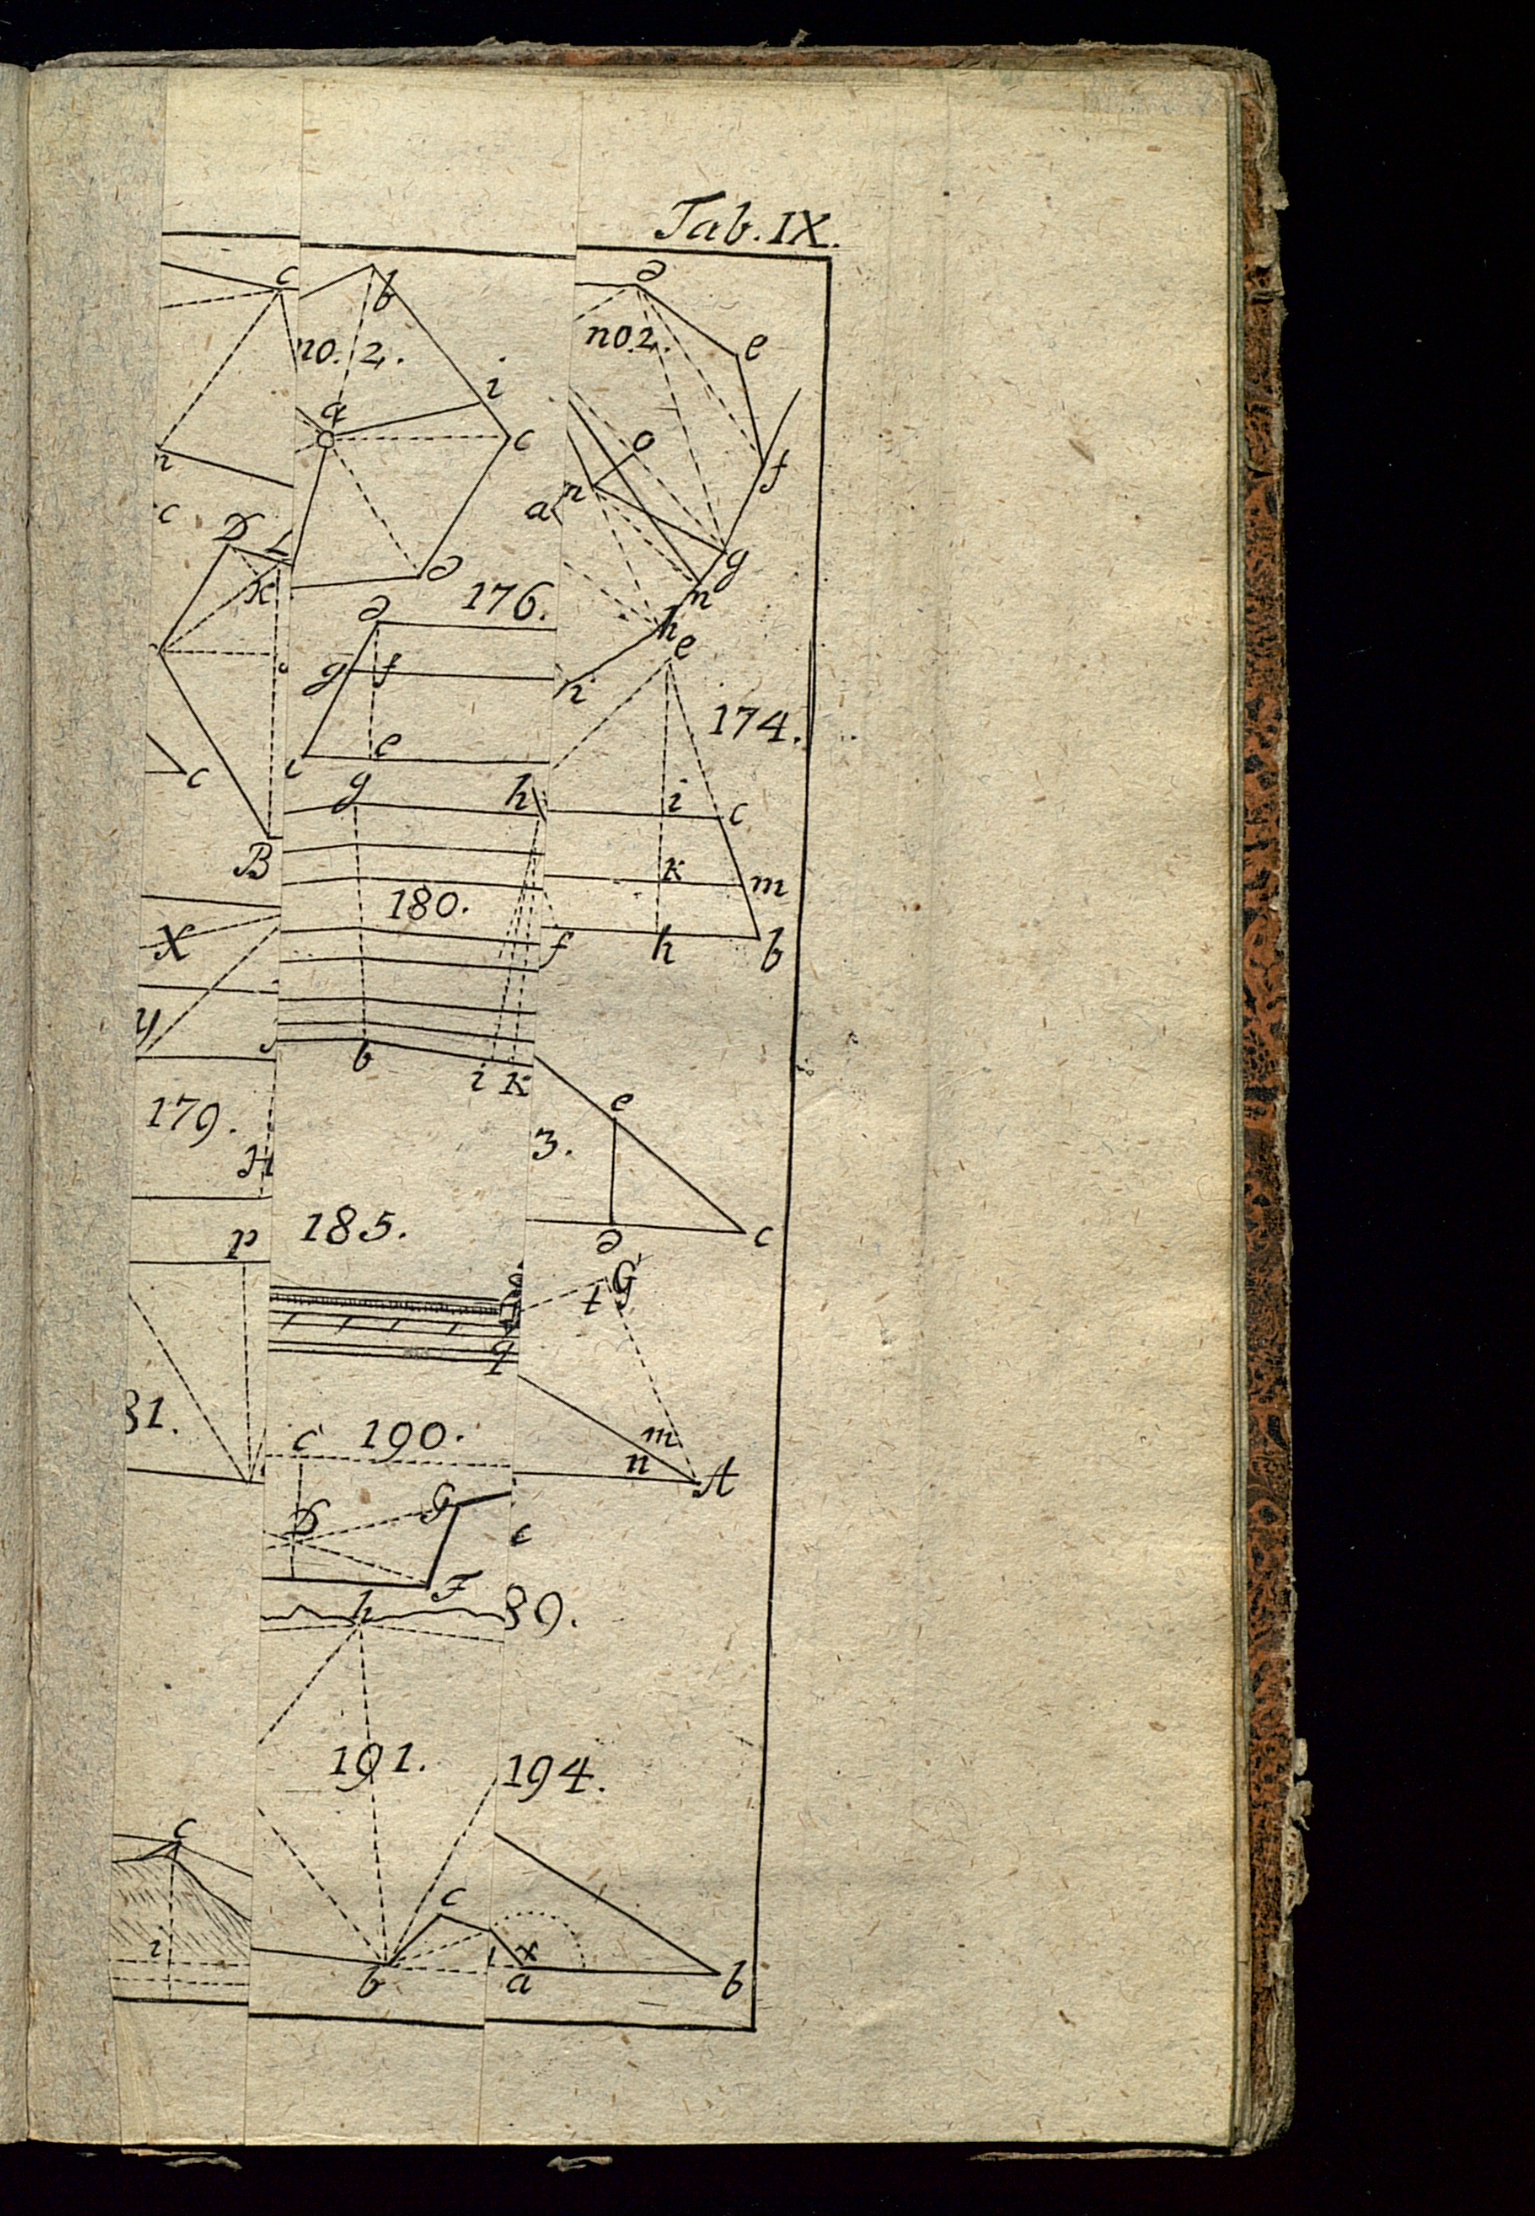 Tab. IX.
c
b
no. 2.
a
i
c
d
n
c
D
L
K
c
B
d
176.
g
f
c
e
d
no. 2.
e
o
f
n
a
g
n
h
i
e
174.
i
c
k
m
f
h
b
g
h
180.
b
i
k
X
y
179.
H
P
185.
q
3.
e
d
c
t
G
m
n
A
81.
C
190.
D
G
F
c
89.
h
191.
194.
c
i
c
b
x
a
b